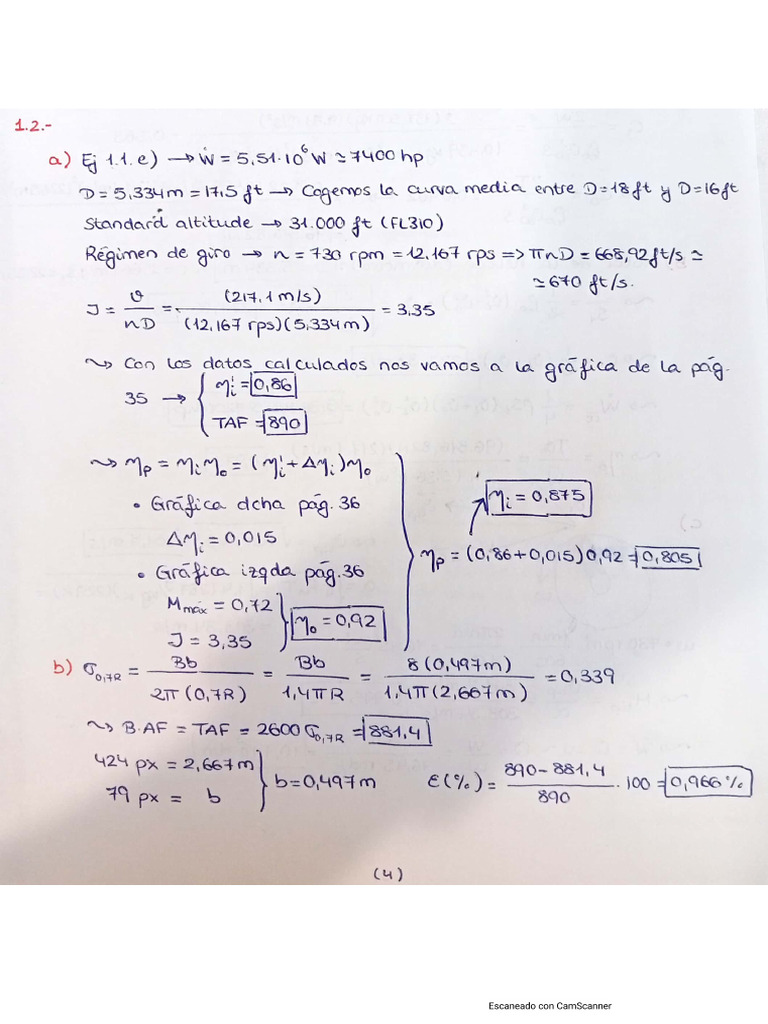 1.2.-
a) Ej 1.1.e) → Ẇ = 5,51·10⁶ W ≃ 7400 hp
D = 5,334 m = 17,5 ft → Cogemos la curva media entre D=18 ft y D=16 ft
Standard altitude → 31.000 ft (FL310)
Régimen de giro → n = 730 rpm = 12.167 rps => πnD = 668,92 ft/s ≃
≃ 670 ft/s.
J = v/nD = (217,1 m/s)/((12,167 rps)(5,334 m)) = 3,35
⤳ Con los datos calculados nos vamos a la gráfica de la pág.
35 → { ηᵢ' = 0,86
TAF = 890
⤳ ηₚ = ηᵢη₀ = (ηᵢ' + Δηᵢ)η₀
• Gráfica dcha pág. 36
Δηᵢ = 0,015
• Gráfica izqda pág. 36
Mmáx = 0,72
J = 3,35 } η₀ = 0,92
ηᵢ = 0,875
ηₚ = (0,86 + 0,015) 0,92 = 0,805
b) σ0,7R = Bb/(2π(0,7R)) = Bb/(1,4πR) = 8(0,497 m)/(1,4π(2,667 m)) = 0,339
⤳ B·AF = TAF = 2600 σ0,7R = 881,4
424 px = 2,667 m
79 px = b } b = 0,497 m
ε(%) = (890 - 881,4)/890 · 100 = 0,966 %
(4)
Escaneado con CamScanner